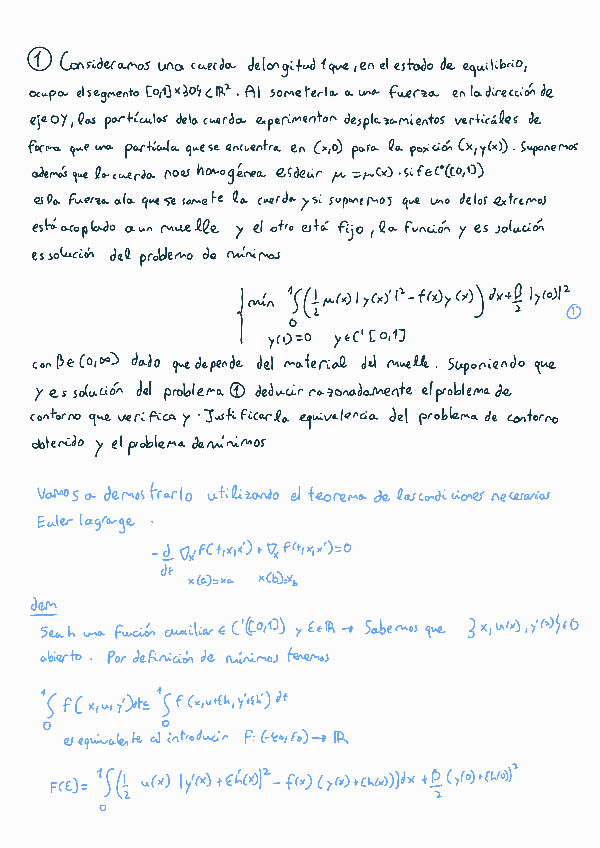 ① Consideramos una cuerda de longitud 1 que, en el estado de equilibrio,
ocupa el segmento [0,1]×{0} ⊂ ℝ². Al someterla a una fuerza en la dirección de
eje OY, las partículas de la cuerda experimentan desplazamientos verticales de
forma que una partícula que se encuentra en (x,0) pasa la posición (x, y(x)). Suponemos
además que la cuerda no es homogénea es decir μ = μ(x). si f ∈ C⁰([0,1])
es la fuerza a la que se somete la cuerda y si suponemos que uno de los extremos
está acoplado a un muelle y el otro está fijo, la función y es solución
es solución del problema de mínimos
min ∫₀¹ (1/2 μ(x) |y(x)'|² - f(x) y(x)) dx + β/2 |y(0)|² ①
y(1)=0 y ∈ C¹[0,1]
con β ∈ (0,∞) dado que depende del material del muelle. Suponiendo que
y es solución del problema ① deducir razonadamente el problema de
contorno que verifica y. Justificar la equivalencia del problema de contorno
obtenido y el problema de mínimos
Vamos a demostrarlo utilizando el teorema de las condiciones necesarias
Euler lagrange.
- d/dt ∇x' f(t,x,x') + ∇x f(t,x,x') = 0
x(a)=xa x(b)=xb
dem
Sea h una función auxiliar ∈ C¹([0,1]) y ε∈ℝ → Sabemos que {x, u(x), y'(x)} ∈ O
abierto. Por definición de mínimos tenemos
∫₀¹ f(x, u, y') dt ≤ ∫₀¹ f(x, u+εh, y'+εh') dt
es equivalente al introducir F: (-ε0, ε0) → ℝ
F(ε) = ∫₀¹ (1/2 u(x) |y'(x) + εh'(x)|² - f(x) (y(x) + εh(x))) dx + β/2 (y(0) + εh(0))²